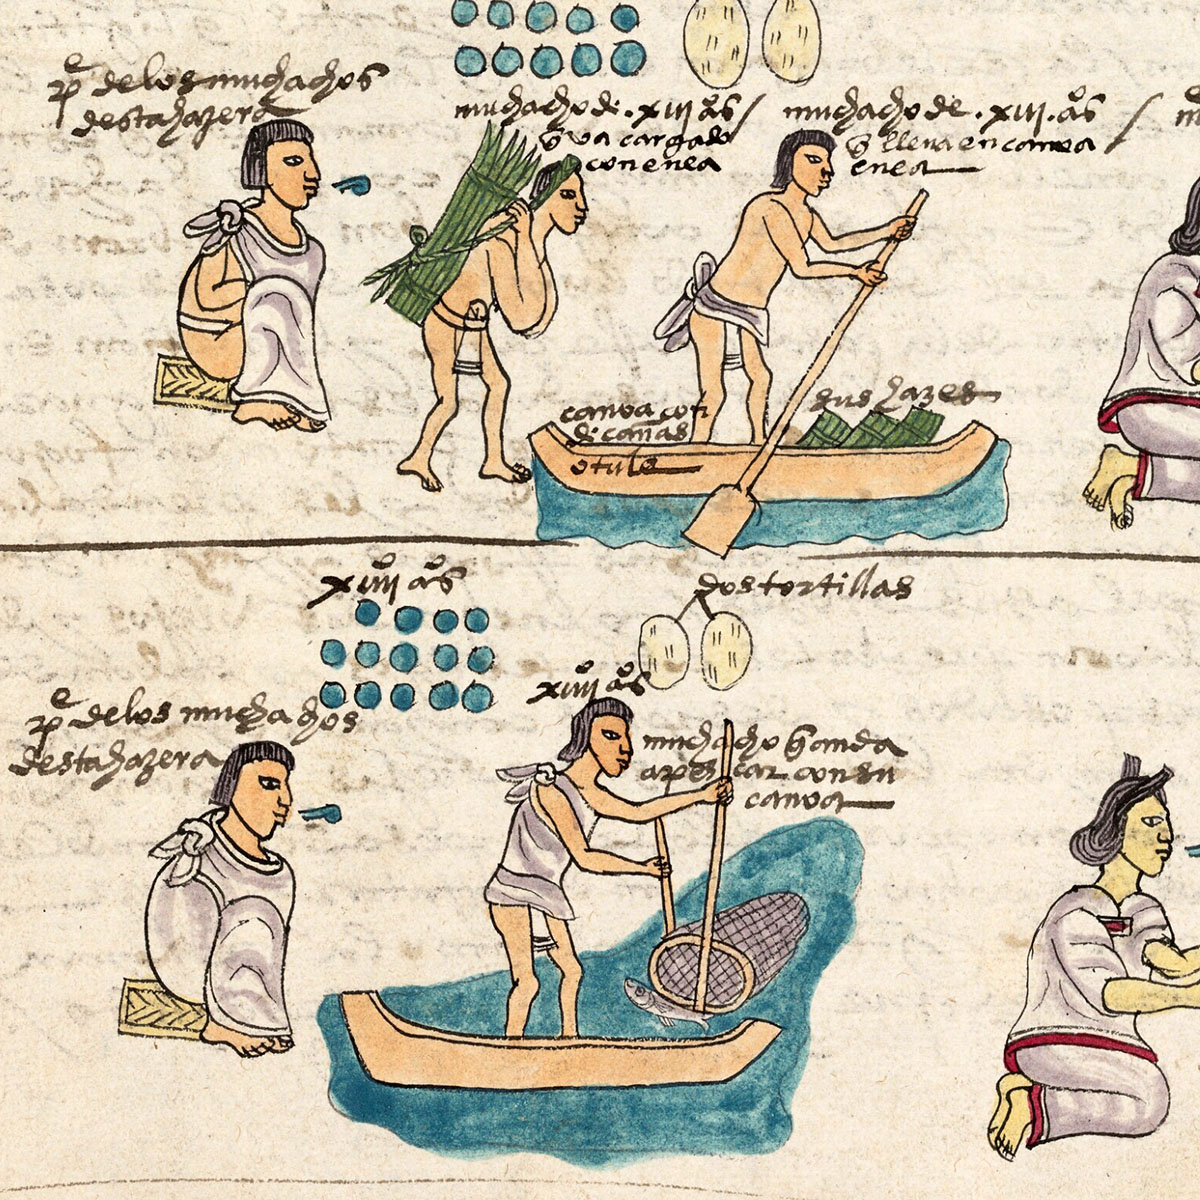 pe de los muchachos
desta hazera
muchacho de . xiij años /
q va cargado
con enea
muchacho de . xiij . años /
q lleva en canoa
enea
canoa con
de cañas
o tule
sus hazes
xiiij años
dos tortillas
pe de los muchachos
desta hazera
xiiij años
muchacho q anda
a pescar con su
canoa